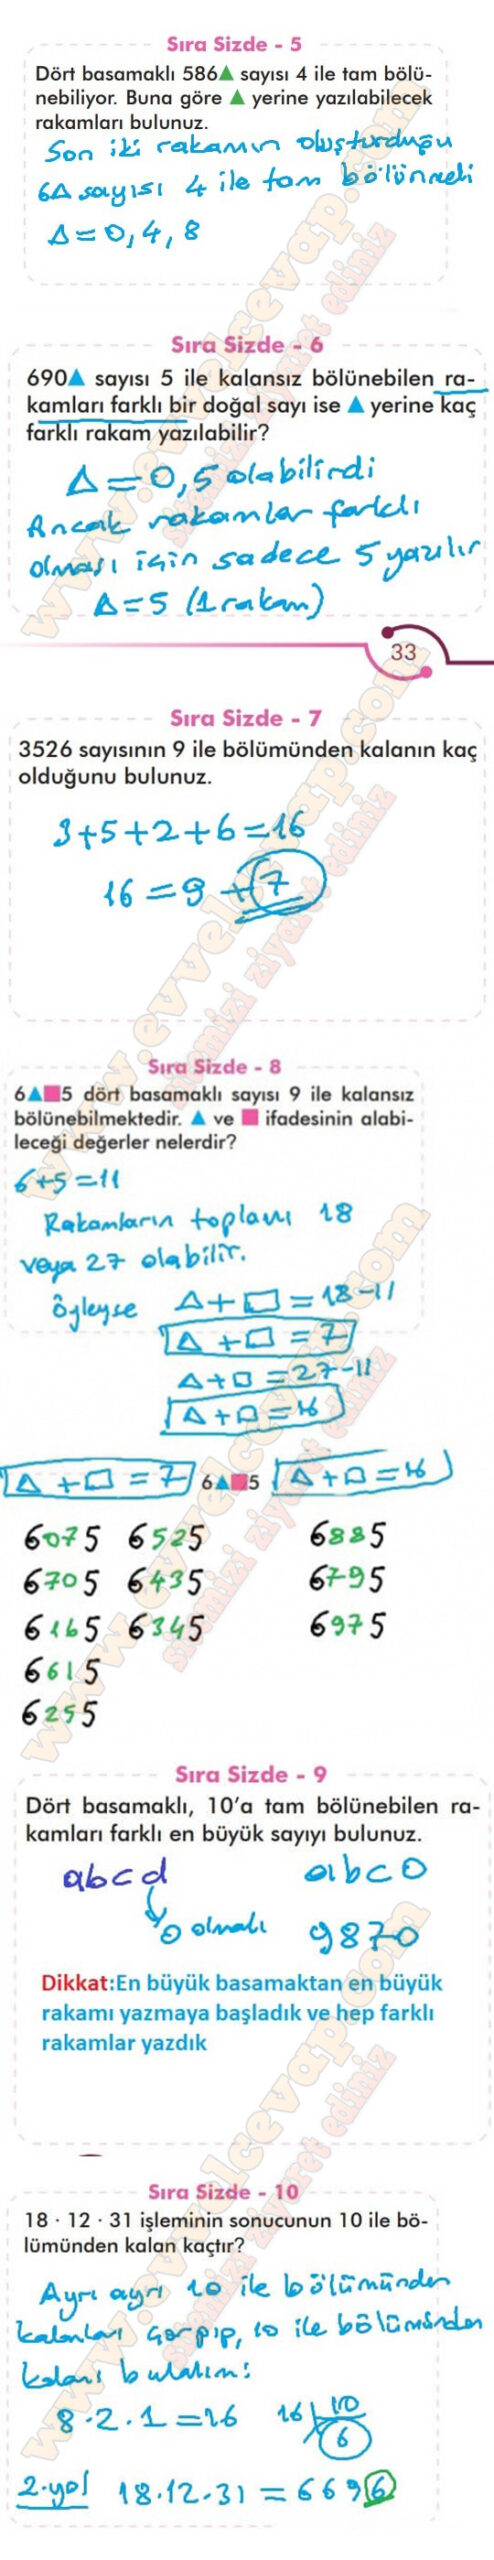 Sıra Sizde - 5
Dört basamaklı 586▲ sayısı 4 ile tam bölü-
nebiliyor. Buna göre ▲ yerine yazılabilecek
rakamları bulunuz.
Son iki rakamın oluşturduğu
6Δ sayısı 4 ile tam bölünmeli
Δ=0,4,8
Sıra Sizde - 6
690▲ sayısı 5 ile kalansız bölünebilen ra-
kamları farklı bir doğal sayı ise ▲ yerine kaç
farklı rakam yazılabilir?
Δ=0,5 olabilirdi
Ancak rakamlar farklı
olması için sadece 5 yazılır
Δ=5 (1 rakam)
33
Sıra Sizde - 7
3526 sayısının 9 ile bölümünden kalanın kaç
olduğunu bulunuz.
3+5+2+6=16
16=9+7
Sıra Sizde - 8
6▲■5 dört basamaklı sayısı 9 ile kalansız
bölünebilmektedir. ▲ ve ■ ifadesinin alabi-
leceği değerler nelerdir?
6+5=11
Rakamların toplamı 18
veya 27 olabilir.
öyleyse Δ+□=18-11
Δ+□=7
Δ+□=27-11
Δ+□=16
Δ+□=7 6▲■5 Δ+□=16
6075 6525 6885
6705 6435 6795
6165 6345 6975
6615
6255
Sıra Sizde - 9
Dört basamaklı, 10'a tam bölünebilen ra-
kamları farklı en büyük sayıyı bulunuz.
abcd abc0
0 olmalı 9870
Dikkat:En büyük basamaktan en büyük
rakamı yazmaya başladık ve hep farklı
rakamlar yazdık
Sıra Sizde - 10
18 · 12 · 31 işleminin sonucunun 10 ile bö-
lümünden kalan kaçtır?
Ayrı ayrı 10 ile bölümünden
kalanları çarpıp, 10 ile bölümünden
kalanı bulalım:
8.2.1=16 16 10
6
2.yol 18.12.31=6696
www.evvelcevap.com
sitemizi ziyaret ediniz
www.evvelcevap.com
sitemizi ziyaret ediniz
www.evvelcevap.com
sitemizi ziyaret ediniz
www.evvelcevap.com
sitemizi ziyaret ediniz